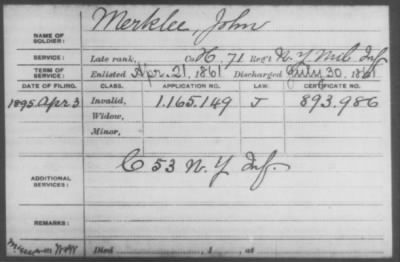 NAME OF SOLDIER: Merklee, John
SERVICE: Late rank, Co H, 71 Reg't N.Y. Mil Inf
TERM OF SERVICE: Enlisted Apr. 21, 1861 Discharged July 30, 1861
DATE OF FILING. CLASS. APPLICATION NO. LAW. CERTIFICATE NO.
1895 Apr 3 Invalid, 1.165.149 J 893.986
Widow,
Minor,
ADDITIONAL SERVICES: C 53 N.Y. Inf.
REMARKS:
Died , 1 , at